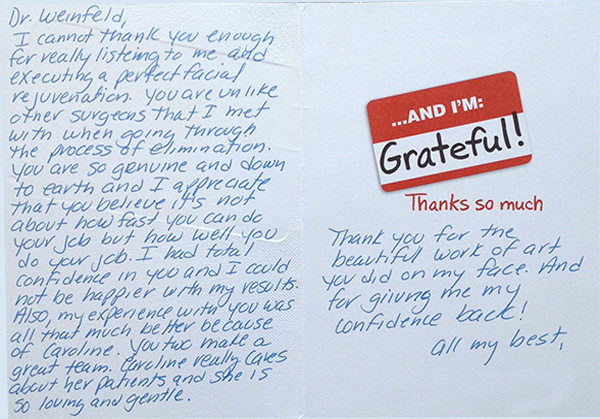 Dr. Weinfeld,
I cannot thank you enough
for really listening to me and
executing a perfect facial
rejuvenation. You are unlike
other surgeons that I met
with when going through
the process of elimination.
You are so genuine and down
to earth and I appreciate
that you believe it's not
about how fast you can do
your job but how well you
do your job. I had total
confidence in you and I could
not be happier with my results.
Also, my experience with you was
all that much better because
of Caroline. You two make a
great team. Caroline really cares
about her patients and she is
so loving and gentle.
...AND I'M:
Grateful!
Thanks so much
Thank you for the
beautiful work of art
you did on my face. And
for giving me my
confidence back!
All my best,